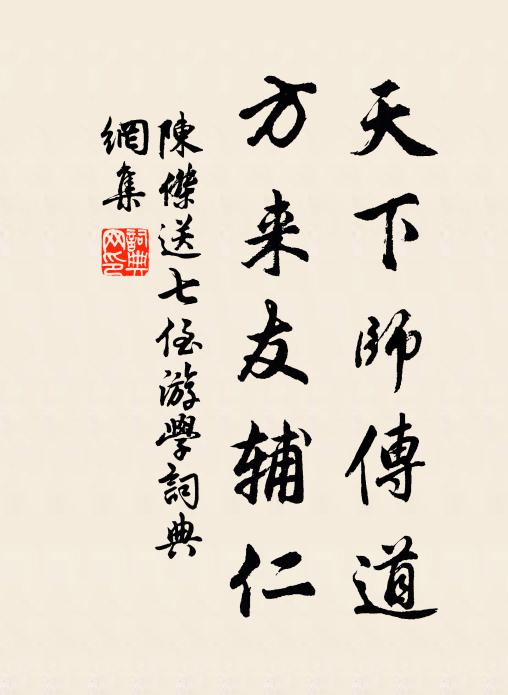 天下師傳道
方来友辅仁
陳傑送七侄游學詞典
網集
詞典
网印